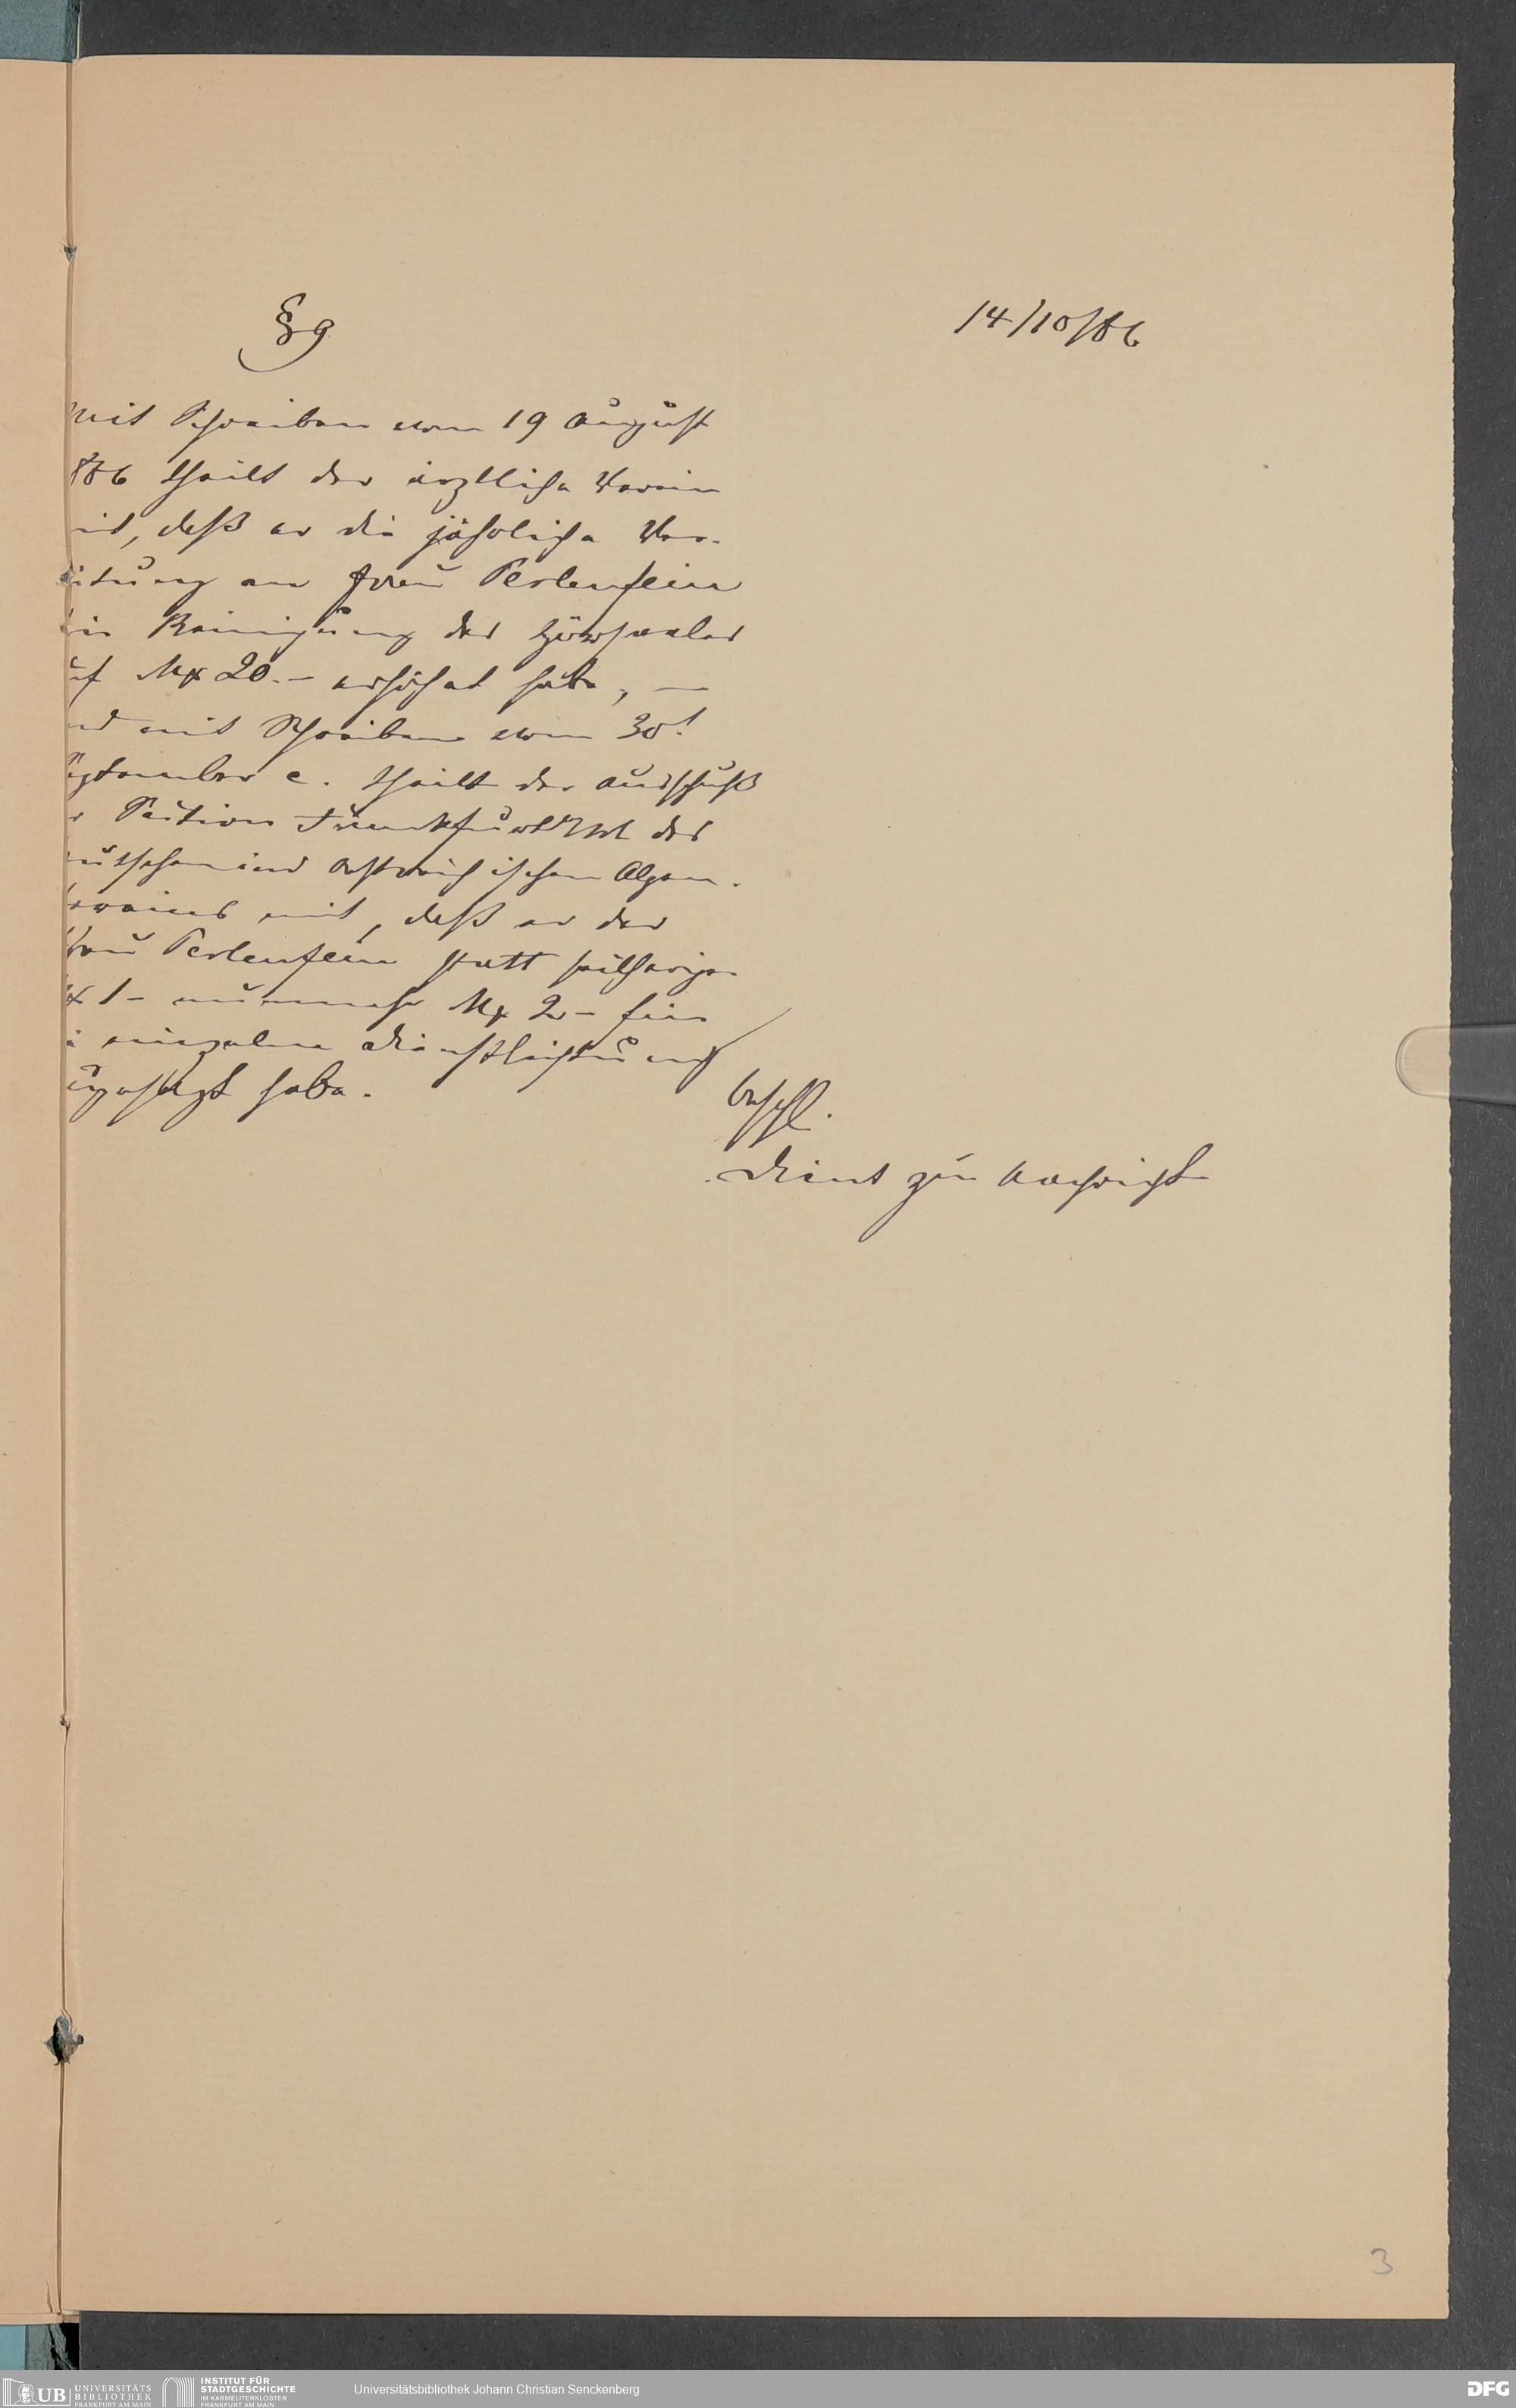 § 9
14/10/86
Mit Schreiben vom 19 August
886 theilt der ärztliche Verein
mit, daß er die jährliche Ver-
gütung an Frau Perlenfein
für Reinigung des Hörsaales
auf Mk 20.– erhöhet habe, –
und mit Schreiben vom 30t
September c. theilt der Ausschuß
der Section Frankfurt a/M des
deutschen und östreichischen Alpen-
vereins mit, daß er der
Frau Perlenfein statt seitherigen
Mk 1– nunmehr Mk 2– für
die einzelne Dienstleistung
zugesagt habe.
Beschl.
Dient zur Nachricht
3
UB UNIVERSITÄTS
BIBLIOTHEK
FRANKFURT AM MAIN
INSTITUT FÜR
STADTGESCHICHTE
IM KARMELITERKLOSTER
FRANKFURT AM MAIN
Universitätsbibliothek Johann Christian Senckenberg
DFG